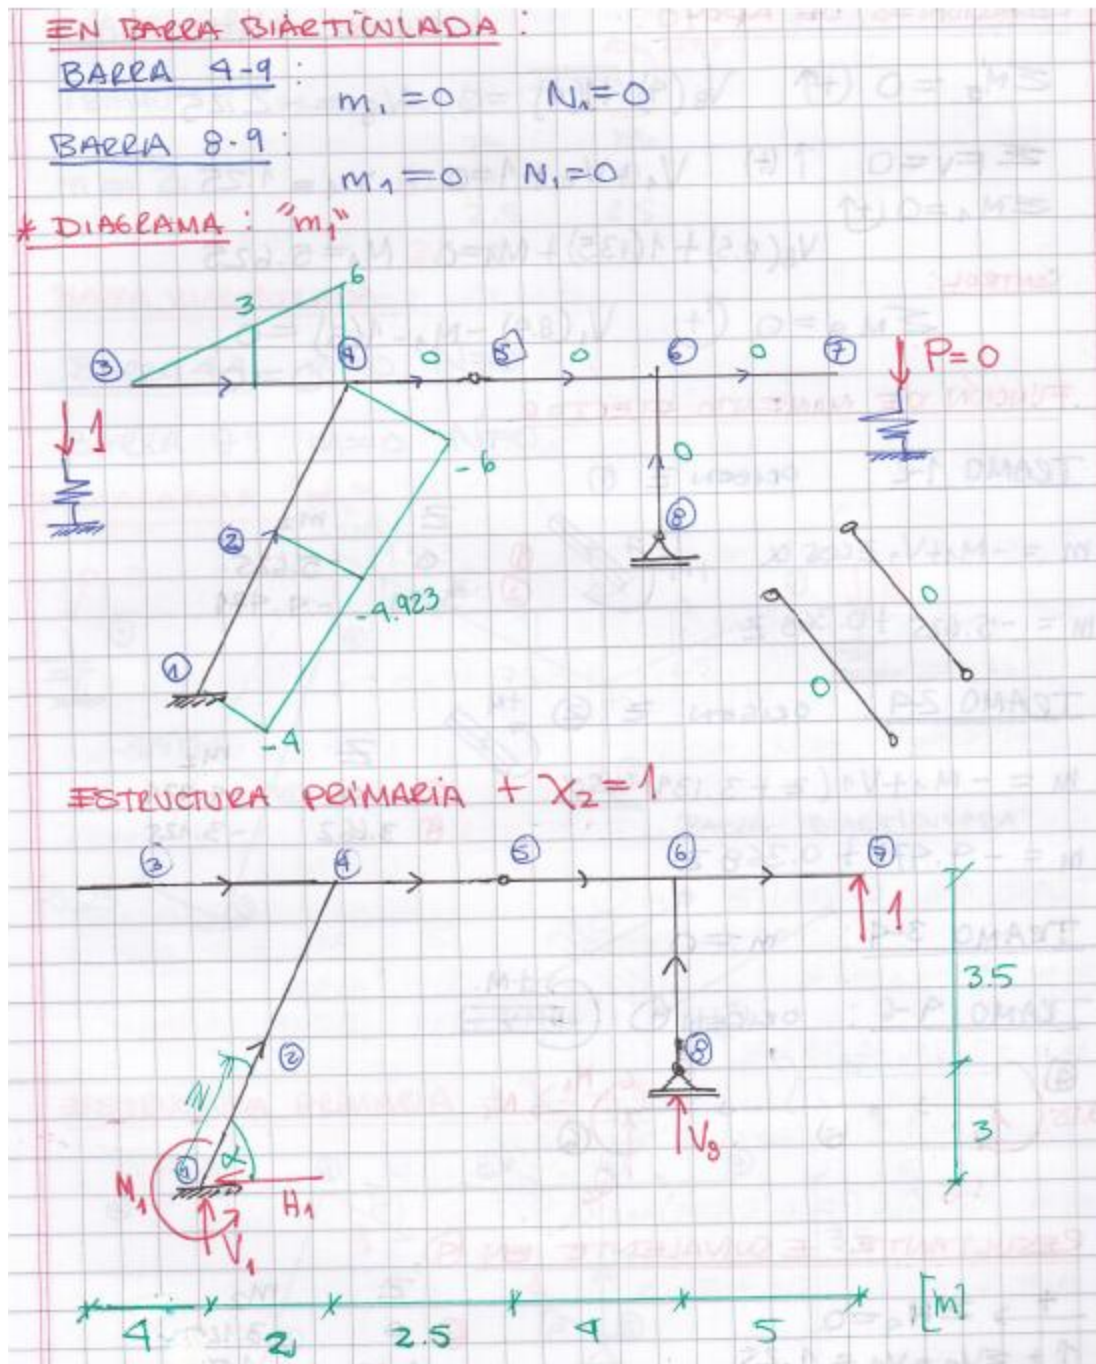 EN BARRA BIARTICULADA :
BARRA 4-9 :
m₁ = 0 N₁ = 0
BARRA 8-9 :
m₁ = 0 N₁ = 0
* DIAGRAMA : "m₁"
6
3
③ ④ 0 ⑤ 0 ⑥ 0 ⑦ P=0
1
-6
0
②
⑧
-4.923
0
①
0
-4
ESTRUCTURA PRIMARIA + X₂ = 1
③ ④ ⑤ ⑥ ⑦
1
3.5
②
⑧
Z
α
V₈
3
①
M₁
H₁
V₁
4 2 2.5 4 5 [m]